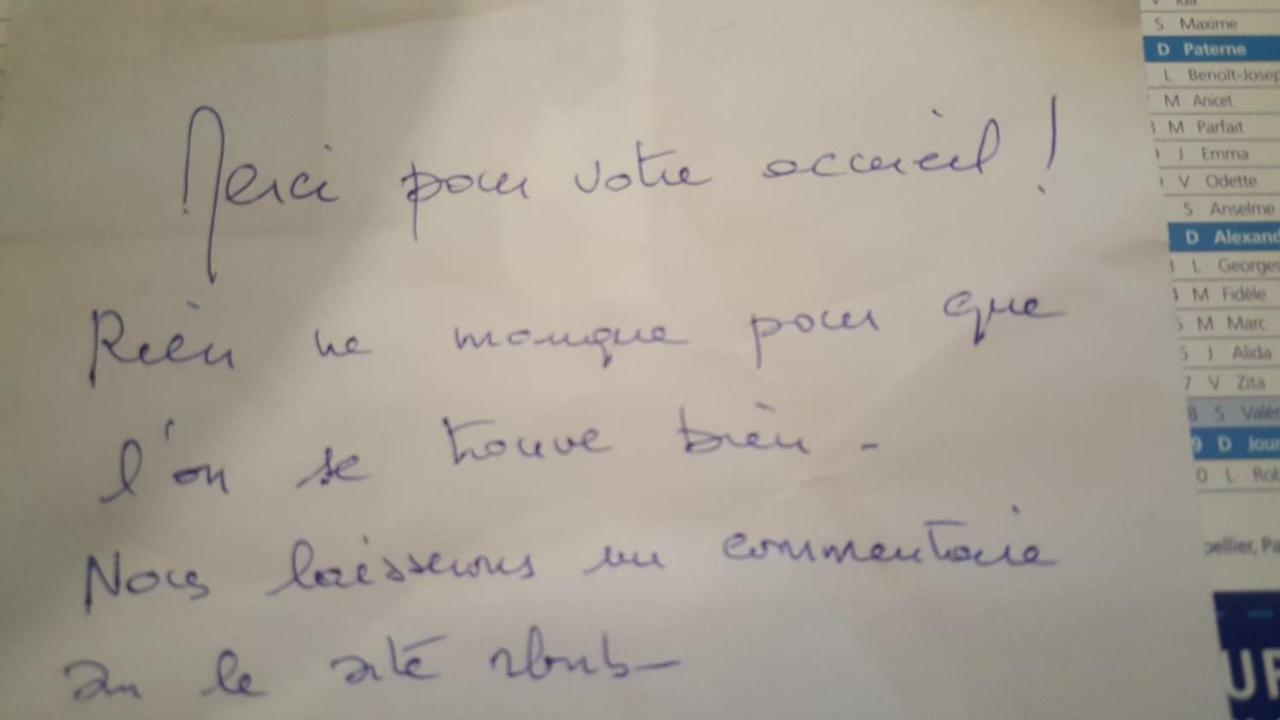 Merci pour votre accueil !
Rien ne manque pour que
l'on se trouve bien -
Nous laisserons un commentaire
sur le site
S Maxime
D Paterne
L Benoît-Josep
M Anicet
M Parfait
J Emma
V Odette
S Anselme
D Alexand
L Georges
M Fidèle
M Marc
J Alida
7 V Zita
8 S Valér
9 D Jour
0 L Rob
pellier, Pa
UR